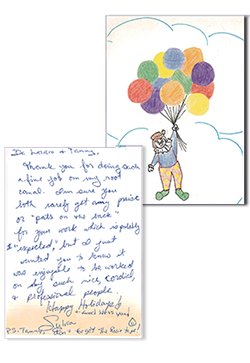 Dr. & Tammy,
Thank you for doing such
a fine job on my root
canal. I'm sure you
both rarely get any praise
or "pats on the back"
for your work which is
"expected," but I just
wanted you to know it
was enjoyable to be worked
on by such nice, cordial,
& professional people.
Happy Holidays
P.S. Tammy, Don't forget the